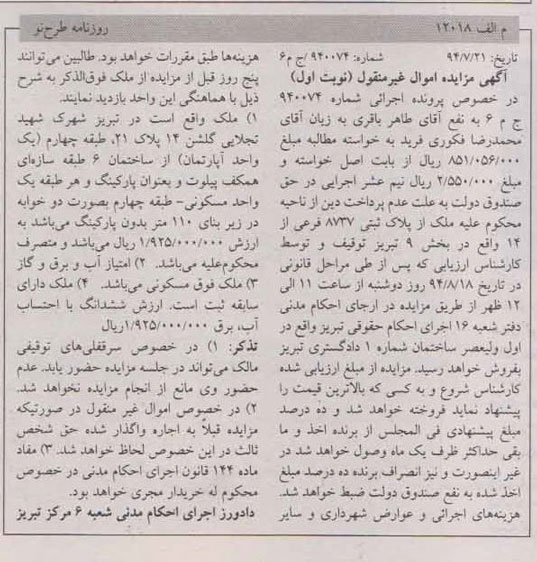 م الف ۱۲۰۱۸
روزنامه طرح‌نو
تاریخ: ۹۴/۷/۲۱ شماره: ۹۴۰۰۷۴/ج م۶
آگهی مزایده اموال غیرمنقول (نوبت اول)
در خصوص پرونده اجرائی شماره ۹۴۰۰۷۴
ج م ۶ به نفع آقای طاهر باقری به زیان آقای
محمدرضا فکوری فرید به خواسته مطالبه مبلغ
۸۵۱/۰۵۶/۰۰۰ ریال از بابت اصل خواسته و
مبلغ ۲/۵۵۰/۰۰۰ ریال نیم عشر اجرایی در حق
صندوق دولت به علت عدم پرداخت دین از ناحیه
محکوم علیه ملک از پلاک ثبتی ۸۷۳۷ فرعی از
۱۴ واقع در بخش ۹ تبریز توقیف و توسط
کارشناس ارزیابی که پس از طی مراحل قانونی
در تاریخ ۹۴/۸/۱۸ روز دوشنبه از ساعت ۱۱ الی
۱۲ ظهر از طریق مزایده در اجرای احکام مدنی
دفتر شعبه ۱۶ اجرای احکام حقوقی تبریز واقع در
اول ولیعصر ساختمان شماره ۱ دادگستری تبریز
بفروش خواهد رسید. مزایده از مبلغ ارزیابی شده
کارشناس شروع و به کسی که بالاترین قیمت را
پیشنهاد نماید فروخته خواهد شد و ده درصد
مبلغ پیشنهادی فی المجلس از برنده اخذ و ما
بقی حداکثر ظرف یک ماه وصول خواهد شد در
غیر اینصورت و نیز انصراف برنده ده درصد مبلغ
اخذ شده به نفع صندوق دولت ضبط خواهد شد.
هزینه‌های اجرائی و عوارض شهرداری و سایر
هزینه‌ها طبق مقررات خواهد بود. طالبین می‌توانند
پنج روز قبل از مزایده از ملک فوق‌الذکر به شرح
ذیل با هماهنگی این واحد بازدید نمایند.
۱) ملک واقع است در تبریز شهرک شهید
تجلایی گلشن ۱۴ پلاک ۲۱، طبقه چهارم (یک
واحد آپارتمان) از ساختمان ۶ طبقه سازه‌ای
همکف پیلوت و بعنوان پارکینگ و هر طبقه یک
واحد مسکونی- طبقه چهارم بصورت دو خوابه
در زیر بنای ۱۱۰ متر بدون پارکینگ می‌باشد به
ارزش ۱/۹۲۵/۰۰۰/۰۰۰ ریال می‌باشد و متصرف
محکوم‌علیه می‌باشد. ۲) امتیاز آب و برق و گاز
۳) ملک فوق مسکونی می‌باشد. ۴) ملک دارای
سابقه ثبت است. ارزش ششدانگ با احتساب
آب، برق ۱/۹۲۵/۰۰۰/۰۰۰ریال
تذکر: ۱) در خصوص سرقفلی‌های توقیفی
مالک می‌تواند در جلسه مزایده حضور یابد. عدم
حضور وی مانع از انجام مزایده نخواهد شد.
۲) در خصوص اموال غیر منقول در صورتیکه
مزایده قبلاً به اجاره واگذار شده حق شخص
ثالث در این خصوص لحاظ خواهد شد. ۳) مفاد
ماده ۱۴۴ قانون اجرای احکام مدنی در خصوص
محکوم له خریدار مجری خواهد بود.
دادورز اجرای احکام مدنی شعبه ۶ مرکز تبریز